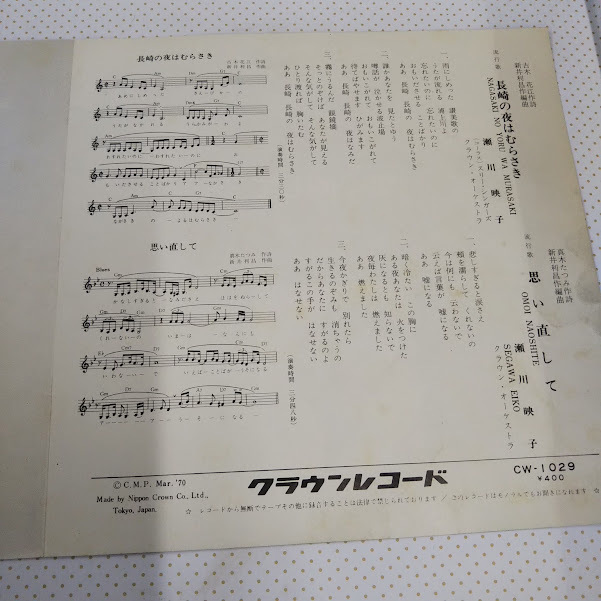 長崎の夜はむらさき
古木花江 作詩
新井利昌 作曲
思い直して
真木たつみ 作詩
新井利昌 作曲
Blues
古木花江作詩
新井利昌作編曲
流行歌
長崎の夜はむらさき
NAGASAKI NO YORU WA MURASAKI
瀬川映子
クラウン・オーケストラ
一、雨にしめった 讃美歌の
うたが流れる 浦上川よ
忘れたいのに 忘れたいのに
おもいださせる ことばかり
ああ 長崎 長崎の 夜はむらさき
二、誰かあなたを 見たとゆう
噂話が 泣かせる波止場
おもいこがれて おもいこがれて
待てばやせます ひがみます
ああ 長崎 長崎の 夜はなみだ
三、霧にうるんだ 眼鏡橋
そっとのぞけば あなたが見える
そんな気がして そんな気がして
ひとり渡れば 胸いたむ
ああ 長崎 長崎の 夜はむらさき
(演奏時間 三分三〇秒)
真木たつみ作詩
新井利昌作編曲
流行歌
思い直して
OMOI NAOSHITE
瀬川映子
SEGAWA EIKO
クラウン・オーケストラ
一、悲しすぎると涙さえ
頬を濡らして くれないの
今は何にも 云わないで
云えば言葉が 嘘になる
ああ 嘘になる
二、暗い冷たい この胸に
ある夜あなたは 火をつけた
灰になるとも 知らないで
夜毎わたしは 燃えました
ああ 燃えました
三、今夜かぎりで 別れたら
生きるのぞみも 消えちゃうの
だからあなたに すがるのよ
すがるこの手が はなせない
ああ はなせない
(演奏時間 三分四八秒)
Ⓒ C.M.P. Mar. '70
Made by Nippon Crown Co., Ltd.,
Tokyo, Japan.
クラウンレコード
CW-1029
¥400
☆ レコードから無断でテープその他に録音することは法律で禁じられております / このレコードはモノラルでもお聞きになれます ☆